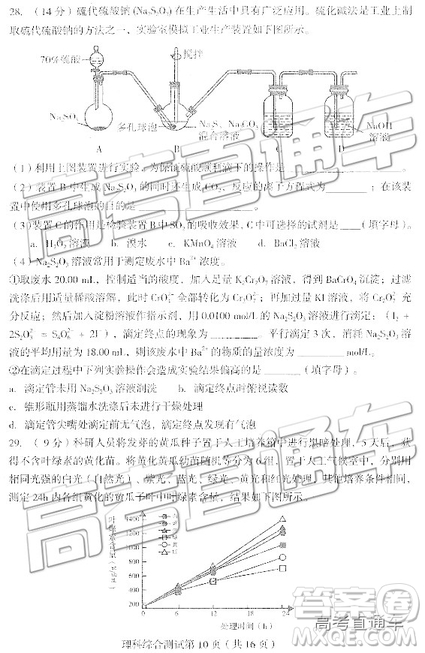 28. (14分) 硫代硫酸钠(Na₂S₂O₃)在生产生活中具有广泛应用。硫化碱法是工业上制
取硫代硫酸钠的方法之一，实验室模拟工业生产装置如下图所示。
70%硫酸 搅拌
Na₂SO₃ 多孔球泡 Na₂S、Na₂CO₃混合溶液 NaOH溶液
A B C D
(1) 利用上图装置进行实验，为保证硫酸顺利滴下的操作是
(2) 装置B中生成Na₂S₂O₃的同时还生成CO₂，反应的离子方程式为______；在该装
置中使用多孔球泡的目的是
(3) 装置C的作用是检验装置B中SO₂的吸收效果，C中可选择的试剂是____(填字母)。
a. H₂O₂溶液 b. 溴水 c. KMnO₄溶液 d. BaCl₂溶液
(4) Na₂S₂O₃溶液常用于测定废水中Ba²⁺浓度。
①取废水20.00 mL，控制适当的酸度，加入足量K₂Cr₂O₇溶液，得到BaCrO₄沉淀；过滤
洗涤后用适量稀盐酸溶解，此时CrO₄²⁻全部转化为Cr₂O₇²⁻；再加过量KI溶液，将Cr₂O₇²⁻充
分反应；然后加入淀粉溶液作指示剂，用0.0100 mol/L的Na₂S₂O₃溶液进行滴定：(I₂ +
2S₂O₃²⁻ = S₄O₆²⁻ + 2I⁻)，滴定终点的现象为______。平行滴定3次，消耗Na₂S₂O₃溶
液的平均用量为18.00 mL，则该废水中Ba²⁺的物质的量浓度为______mol/L。
②在滴定过程中下列实验操作会造成实验结果偏高的是______(填字母)。
a. 滴定管未用Na₂S₂O₃溶液润洗 b. 滴定终点时俯视读数
c. 锥形瓶用蒸馏水洗涤后未进行干燥处理
d. 滴定管尖嘴处滴定前无气泡，滴定终点发现有气泡
29. (9分) 科研人员将发芽的黄瓜种子置于人工培养箱中进行黑暗处理，5天后，获
得不含叶绿素的黄化苗。将黄化黄瓜幼苗随机等分为6组，置于人工气候室中，分别用
相同光强的白光(自然光)、紫光、蓝光、绿光、黄光和红光处理，其他培养条件相同，
测定24h内各组黄化的黄瓜子叶中叶绿素含量，结果如下图所示。
1400
1200
1000
800
600
400
200
0 6 12 18 24
处理时间(h)
理科综合测试第10页(共16页)
高考直通车
高考直通车
高考直通车
高考直通车
答案圈
MXQE.COM